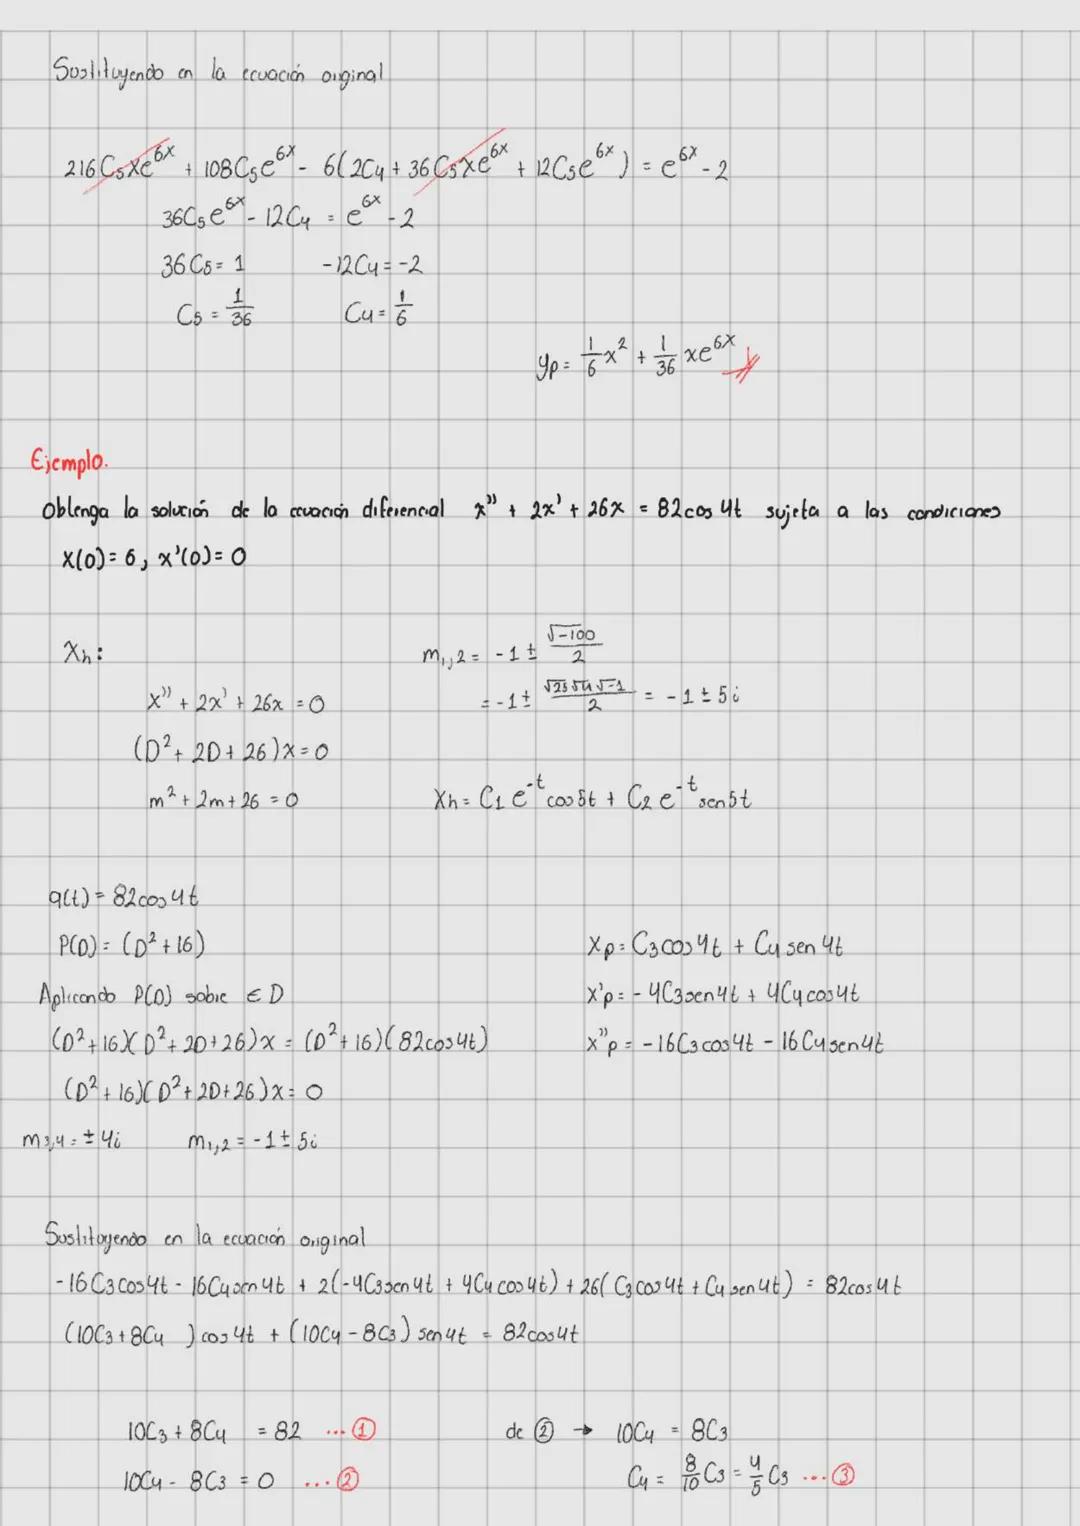 Sustituyendo en la ecuación original
216C₅xe⁶ˣ + 108C₅e⁶ˣ - 6(2C₄ + 36C₅xe⁶ˣ + 12C₅e⁶ˣ) = e⁶ˣ - 2
36C₅e⁶ˣ - 12C₄ = e⁶ˣ - 2
36C₅ = 1 -12C₄ = -2
C₅ = 1/36 C₄ = 1/6
yp = 1/6 x² + 1/36 xe⁶ˣ
Ejemplo.
Obtenga la solución de la ecuación diferencial x'' + 2x' + 26x = 82cos 4t sujeta a las condiciones
x(0) = 6, x'(0) = 0
Xh:
x'' + 2x' + 26x = 0
(D² + 2D + 26)x = 0
m² + 2m + 26 = 0
m₁,₂ = -1 ± √-100/2
= -1 ± √25√4√-1/2 = -1 ± 5i
Xh = C₁e⁻ᵗcos5t + C₂e⁻ᵗsen5t
q(t) = 82cos4t
P(D) = (D² + 16)
Aplicando P(D) sobre ED
(D² + 16)(D² + 2D + 26)x = (D² + 16)(82cos4t)
(D² + 16)(D² + 2D + 26)x = 0
m₃,₄ = ±4i m₁,₂ = -1 ± 5i
Xp = C₃cos4t + C₄sen4t
x'p = -4C₃sen4t + 4C₄cos4t
x''p = -16C₃cos4t - 16C₄sen4t
Sustituyendo en la ecuación original
-16C₃cos4t - 16C₄sen4t + 2(-4C₃sen4t + 4C₄cos4t) + 26(C₃cos4t + C₄sen4t) = 82cos4t
(10C₃ + 8C₄ ) cos4t + (10C₄ - 8C₃) sen4t = 82cos4t
10C₃ + 8C₄ = 82 ... ①
10C₄ - 8C₃ = 0 ... ②
de ② → 10C₄ = 8C₃
C₄ = 8/10 C₃ = 4/5 C₃ ... ③